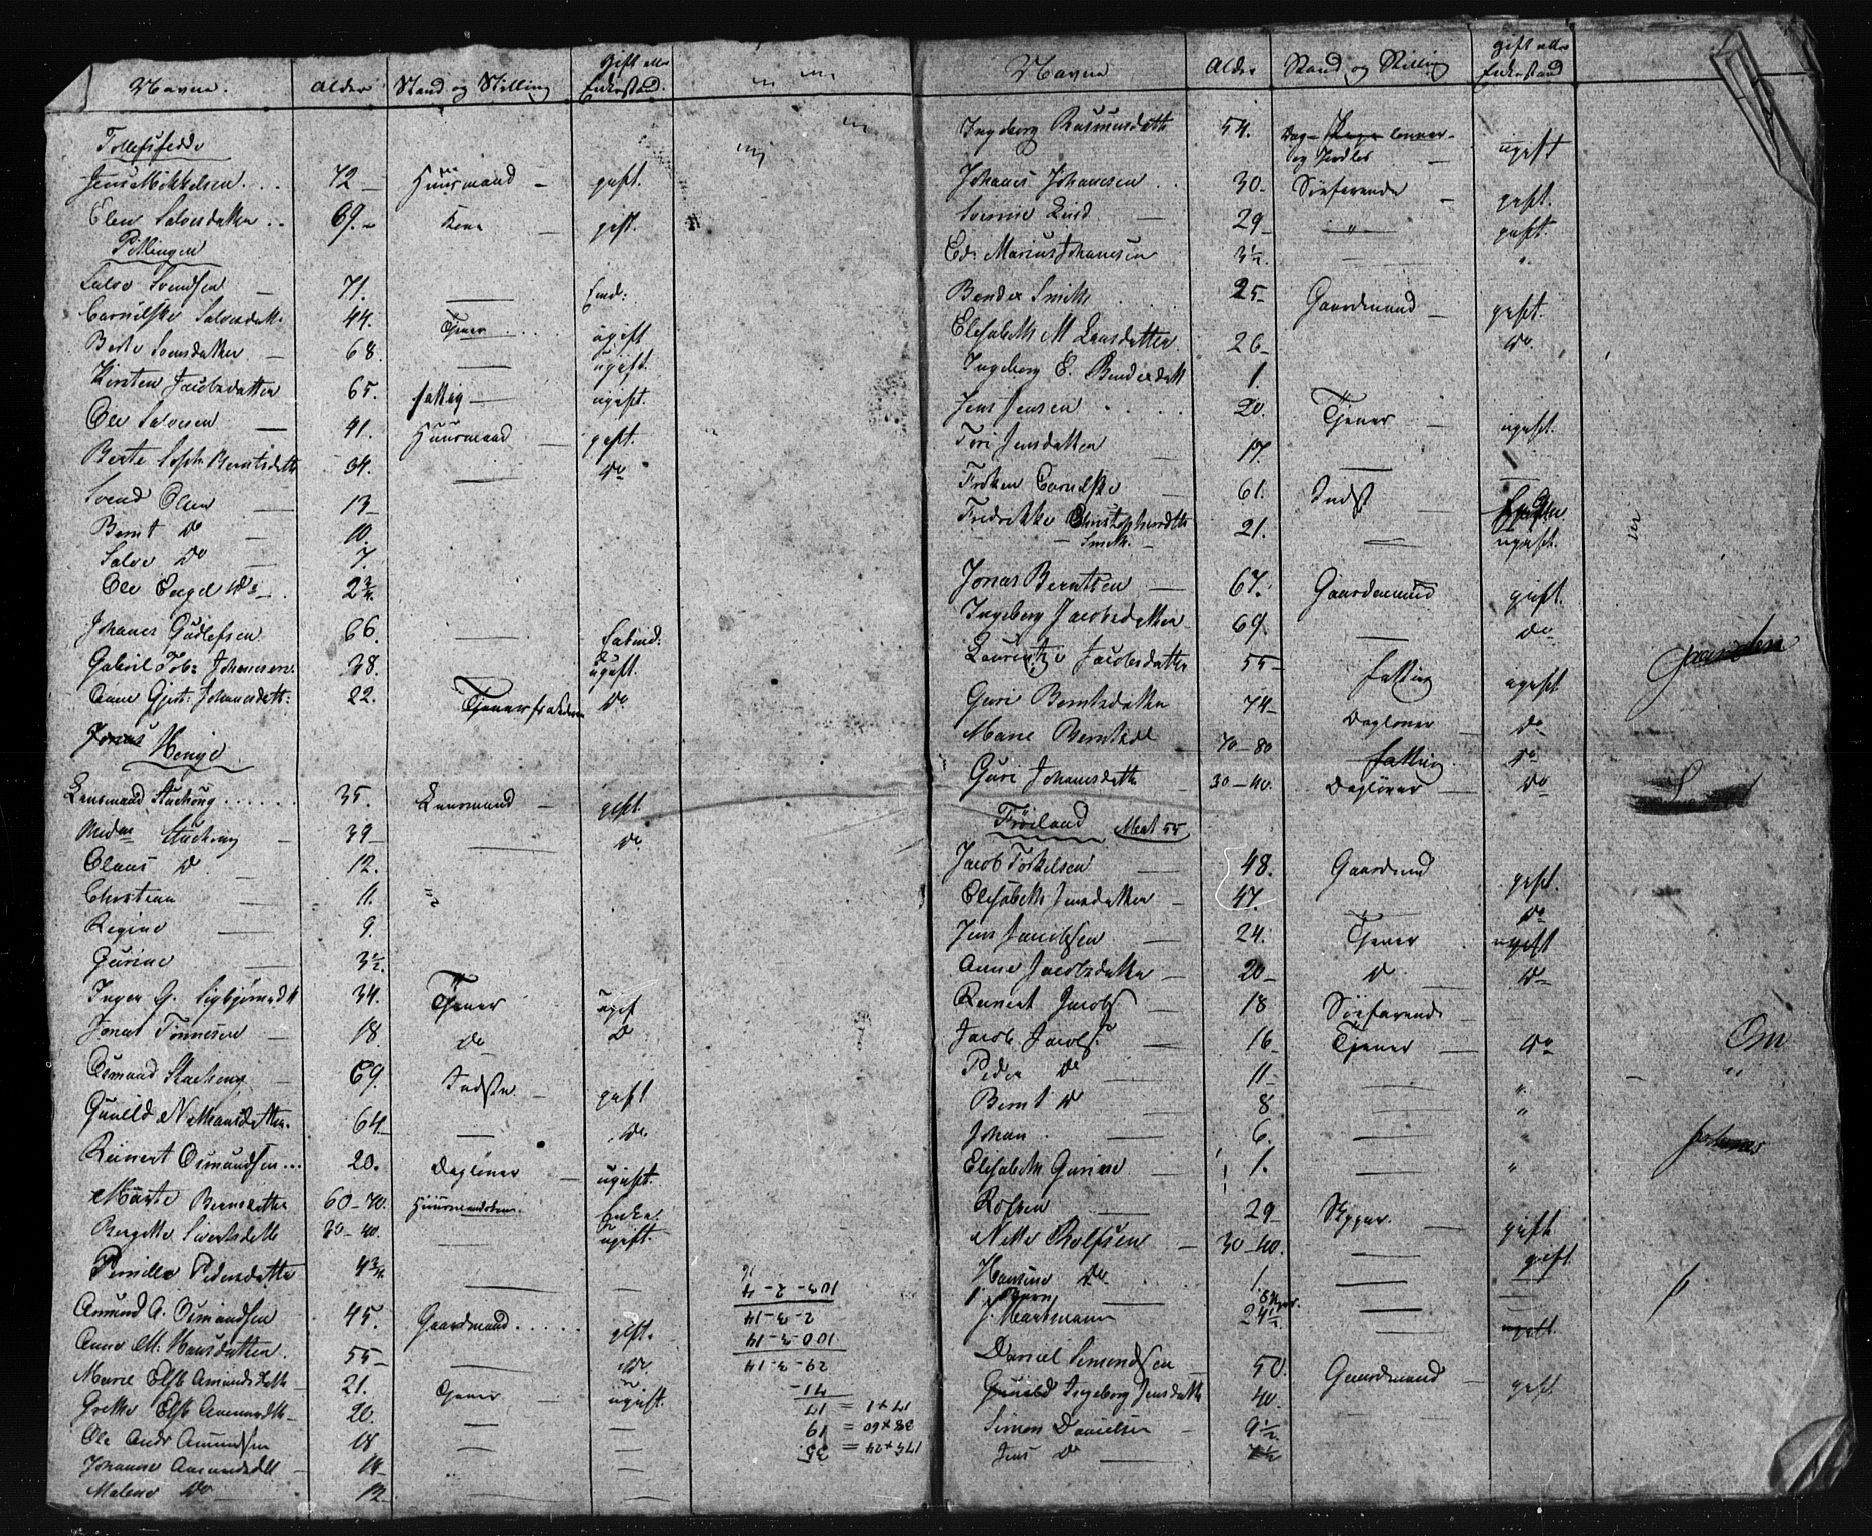 Navne. Alder Stand og Stilling Gift eller Enkestand.
Tollefsfedde
Jens Mikkelsen 72 Huusmand gift.
Elen Salvesdatter 69. Kone gift.
Pitlingen
Salve Svendsen 71. Enk:
Salvesdatt. 44. Tjener ugift
Berte Svensdatter 68. ugift.
Kirsten Jacobsdatter 65. fattig ugift.
Ole Salvesen 41. Huusmand gift.
Berte Soph: Berntsdatt 34. Do
Svend Olsen 13
Bernt Do 10.
Salve Do 7.
Ole Engel Do 2 3/4.
Johanes Gudlefsen 66.
Gabriel Tob: Johanesen. 38. ugift.
Ane Gjert: Johanesdatt: 22. Tjener Do
Jonas Henge
Lensmand Stachong 35. Lensmand gift.
Madm Stachong 39 Do
Claus D 12.
Christian 11.
Regine 9.
Gurine 3 1/2.
Inger G. Sigbjørnsd 34. Tjener ugift
Jonas Tønnesen 18. Do D
Osmund Stachong 69. Indste gift
Gunild Nathansdatter. 64. Do
Reinert Osmundsen 20. Dagløner ugift.
Marte Berntsdatter 60-70. Huusmandskone. Enke.
Bergitte Sivertsdatt 30-40. ugift.
Pernille Pedersdatter 4 3/4.
Asmund A. Osmundsen 45. Gaardmand. gift.
Anne M. Hansdatter. 55 Do
Marie Elsb Amundsdatt 21. Tjener ugift.
Grethe Elsb Amundsdt 20.
Ole Andr Amundsen 18
Johanne Amundsdtt 14
Malene Do 12.
103-2-4
2-3-14
100-3-14
29-3-14
71-
17+1 = 17
38+60 = 19
175+24 = 35
Navne Alder Stand og Stilling gift eller Enkestand
Ingeborg Rasmusdatter 54. Dag- lønner og Jordløs ugift
Johanes Johanesen 30. Søefarende gift.
Lind 29 " gift.
Ed: Marius Johanesen 3 1/2. "
Bender Smith 25 Gaardmand gift.
Elisabeth M Larsdatter 26 Do
Ingeborg E. Bendersdatt 1.
Jens Jensen 20. Tjener ugift.
Tøri Jensdatter 17.
Frøken 61. Indst
Fredrikke Christophersdtt Smith. 21. ugift.
Jonas Berntsen 67. Gaardmand gift.
Ingeborg Jacobsdatter 69. Do
Laurentze Jacobsdatter 55 fattig ugift.
Guri Berntsdatter 74 Dagløner Do
Marie Berntsdtt 70-80 fattig. Do
Guri Johanesdatter 30-40. Dagløner Do
Frøiland Mat 55
Jacob Torkelsen 48. Gaardmd gift.
Elisabeth Jensdatter 47. Do
Jens Jacobsen 24. Tjener ugift
Anne Jacobsdatter 20 D Do
Reinert Jacobs 18 Søefarende
Jacob Jacobs. 16 Tjener Do
On
Peder Do 11 "
Bernt D 8 "
Johan. 6. "
Johanes
Elisabeth Gurine 1. "
Rolfsen 29 Skipper. gift
Nette Rolfsen 30-40. gift.
Hansine Do 1.
1 Barn
J. Hartmann 24 1/2. ugift.
Daniel Simondsen 50. Gaardmand gift.
Gunild Ingeborg Jensdatt 40.
Simon Danielsen 9 1/2.
Jens D